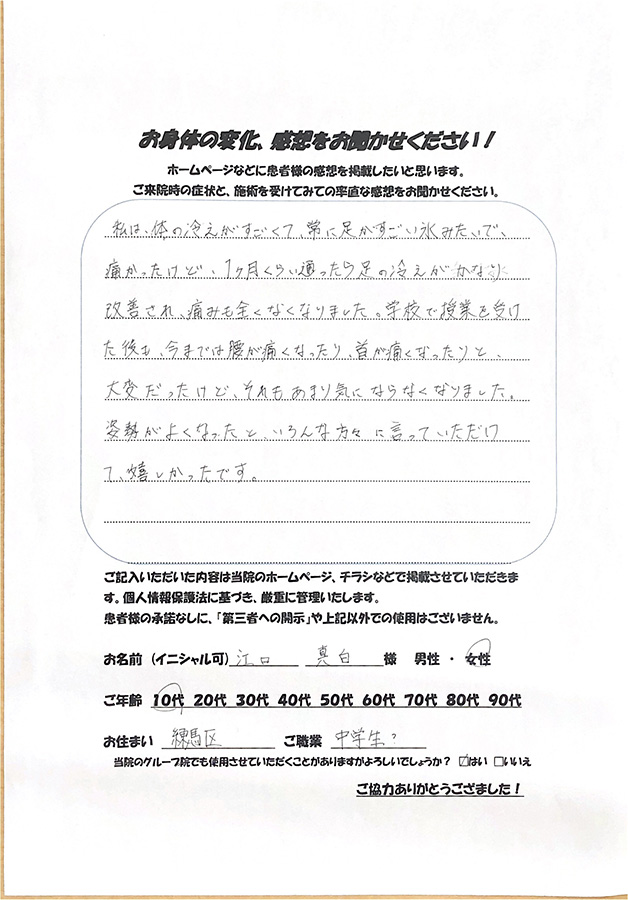 お身体の変化、感想をお聞かせください！
ホームページなどに患者様の感想を掲載したいと思います。
ご来院時の症状と、施術を受けてみての率直な感想をお聞かせください。
私は、体の冷えがすごくて、常に足がすごい氷みたいで、
痛かったけど、1ヶ月くらい通ったら足の冷えがかなり
改善され、痛みも全くなくなりました。学校で授業を受け
た後も、今までは腰が痛くなったり、首が痛くなったりと、
大変だったけど、それもあまり気にならなくなりました。
姿勢がよくなったと、いろんな方々に言っていただけ
て、嬉しかったです。
ご記入いただいた内容は当院のホームページ、チラシなどで掲載させていただきま
す。個人情報保護法に基づき、厳重に管理いたします。
患者様の承諾なしに、「第三者への開示」や上記以外での使用はございません。
お名前（イニシャル可）江口 真白 様 男性・女性
ご年齢 10代 20代 30代 40代 50代 60代 70代 80代 90代
お住まい 練馬区 ご職業 中学生?
当院のグループ院でも使用させていただくことがありますがよろしいでしょうか？ ☑はい □いいえ
ご協力ありがとうござました！